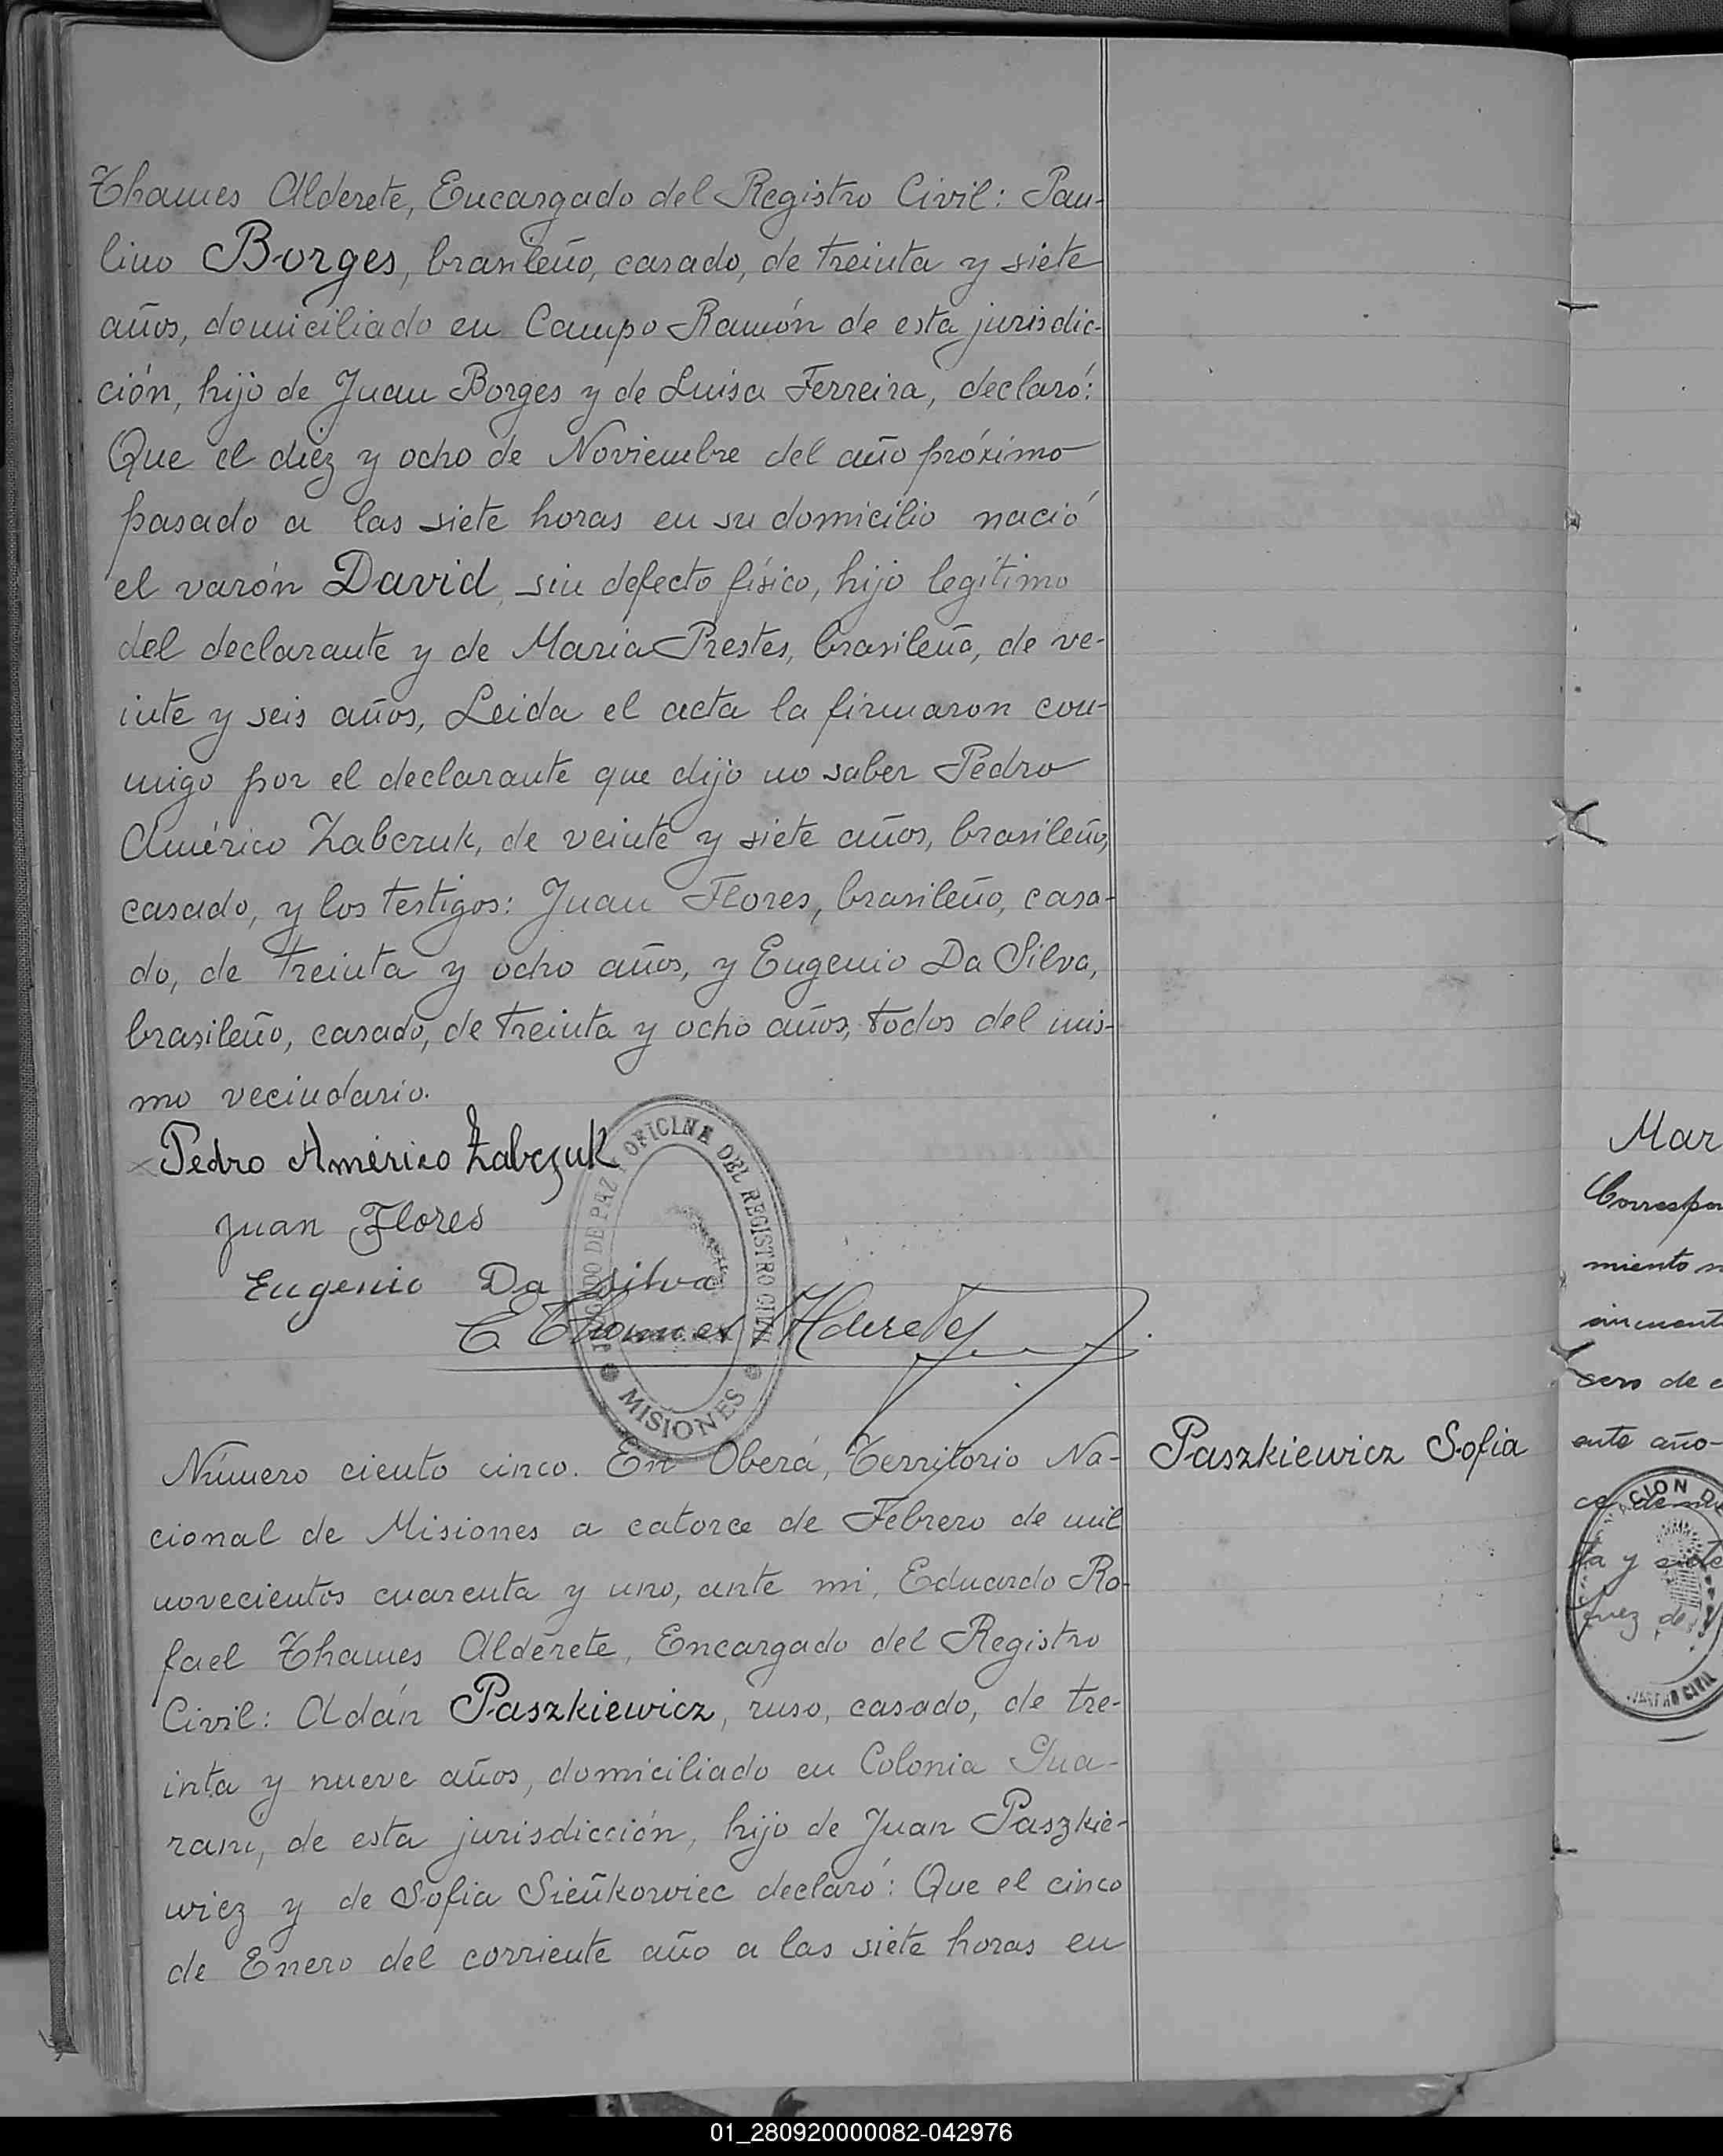 Thames Alderete, Encargado del Registro Civil: Pau-
lino Borges, brasileño, casado, de treinta y siete
años, domiciliado en Campo Ramón de esta jurisdic-
ción, hijo de Juan Borges y de Luisa Ferreira, declaró:
Que el diez y ocho de Noviembre del año próximo
pasado a las siete horas en su domicilio nació
el varón David, sin defecto físico, hijo legítimo
del declarante y de Maria Prestes, brasileña, de ve-
inte y seis años, Leida el acta la firmaron con-
migo por el declarante que dijo no saber Pedro
Américo Zabczuk, de veinte y siete años, brasileño,
casado, y los testigos: Juan Flores, brasileño, casa-
do, de treinta y ocho años, y Eugenio Da Silva,
brasileño, casado, de treinta y ocho años, todos del mis-
mo vecindario.
Pedro Américo Zabczuk
Juan Flores
Eugenio Da silva
E Thames Alderete
JUZGADO DE PAZ Y OFICINA DEL REGISTRO CIVIL
MISIONES
Número ciento cinco. En Oberá, Territorio Na-
cional de Misiones a catorce de Febrero de mil
novecientos cuarenta y uno, ante mi, Eduardo Ra-
fael Thames Alderete, Encargado del Registro
Civil: Adán Paszkiewicz, ruso, casado, de tre-
inta y nueve años, domiciliado en Colonia Gua-
rani, de esta jurisdicción, hijo de Juan Paszkie-
wicz y de Sofia Sieñkowiec declaró: Que el cinco
de Enero del corriente año a las siete horas en
Paszkiewicz Sofia
Mar
Correspon
miento n
cincuent
de
ente año-
ta y siete
Juez de
CION D
CIVIL
01_280920000082-042976